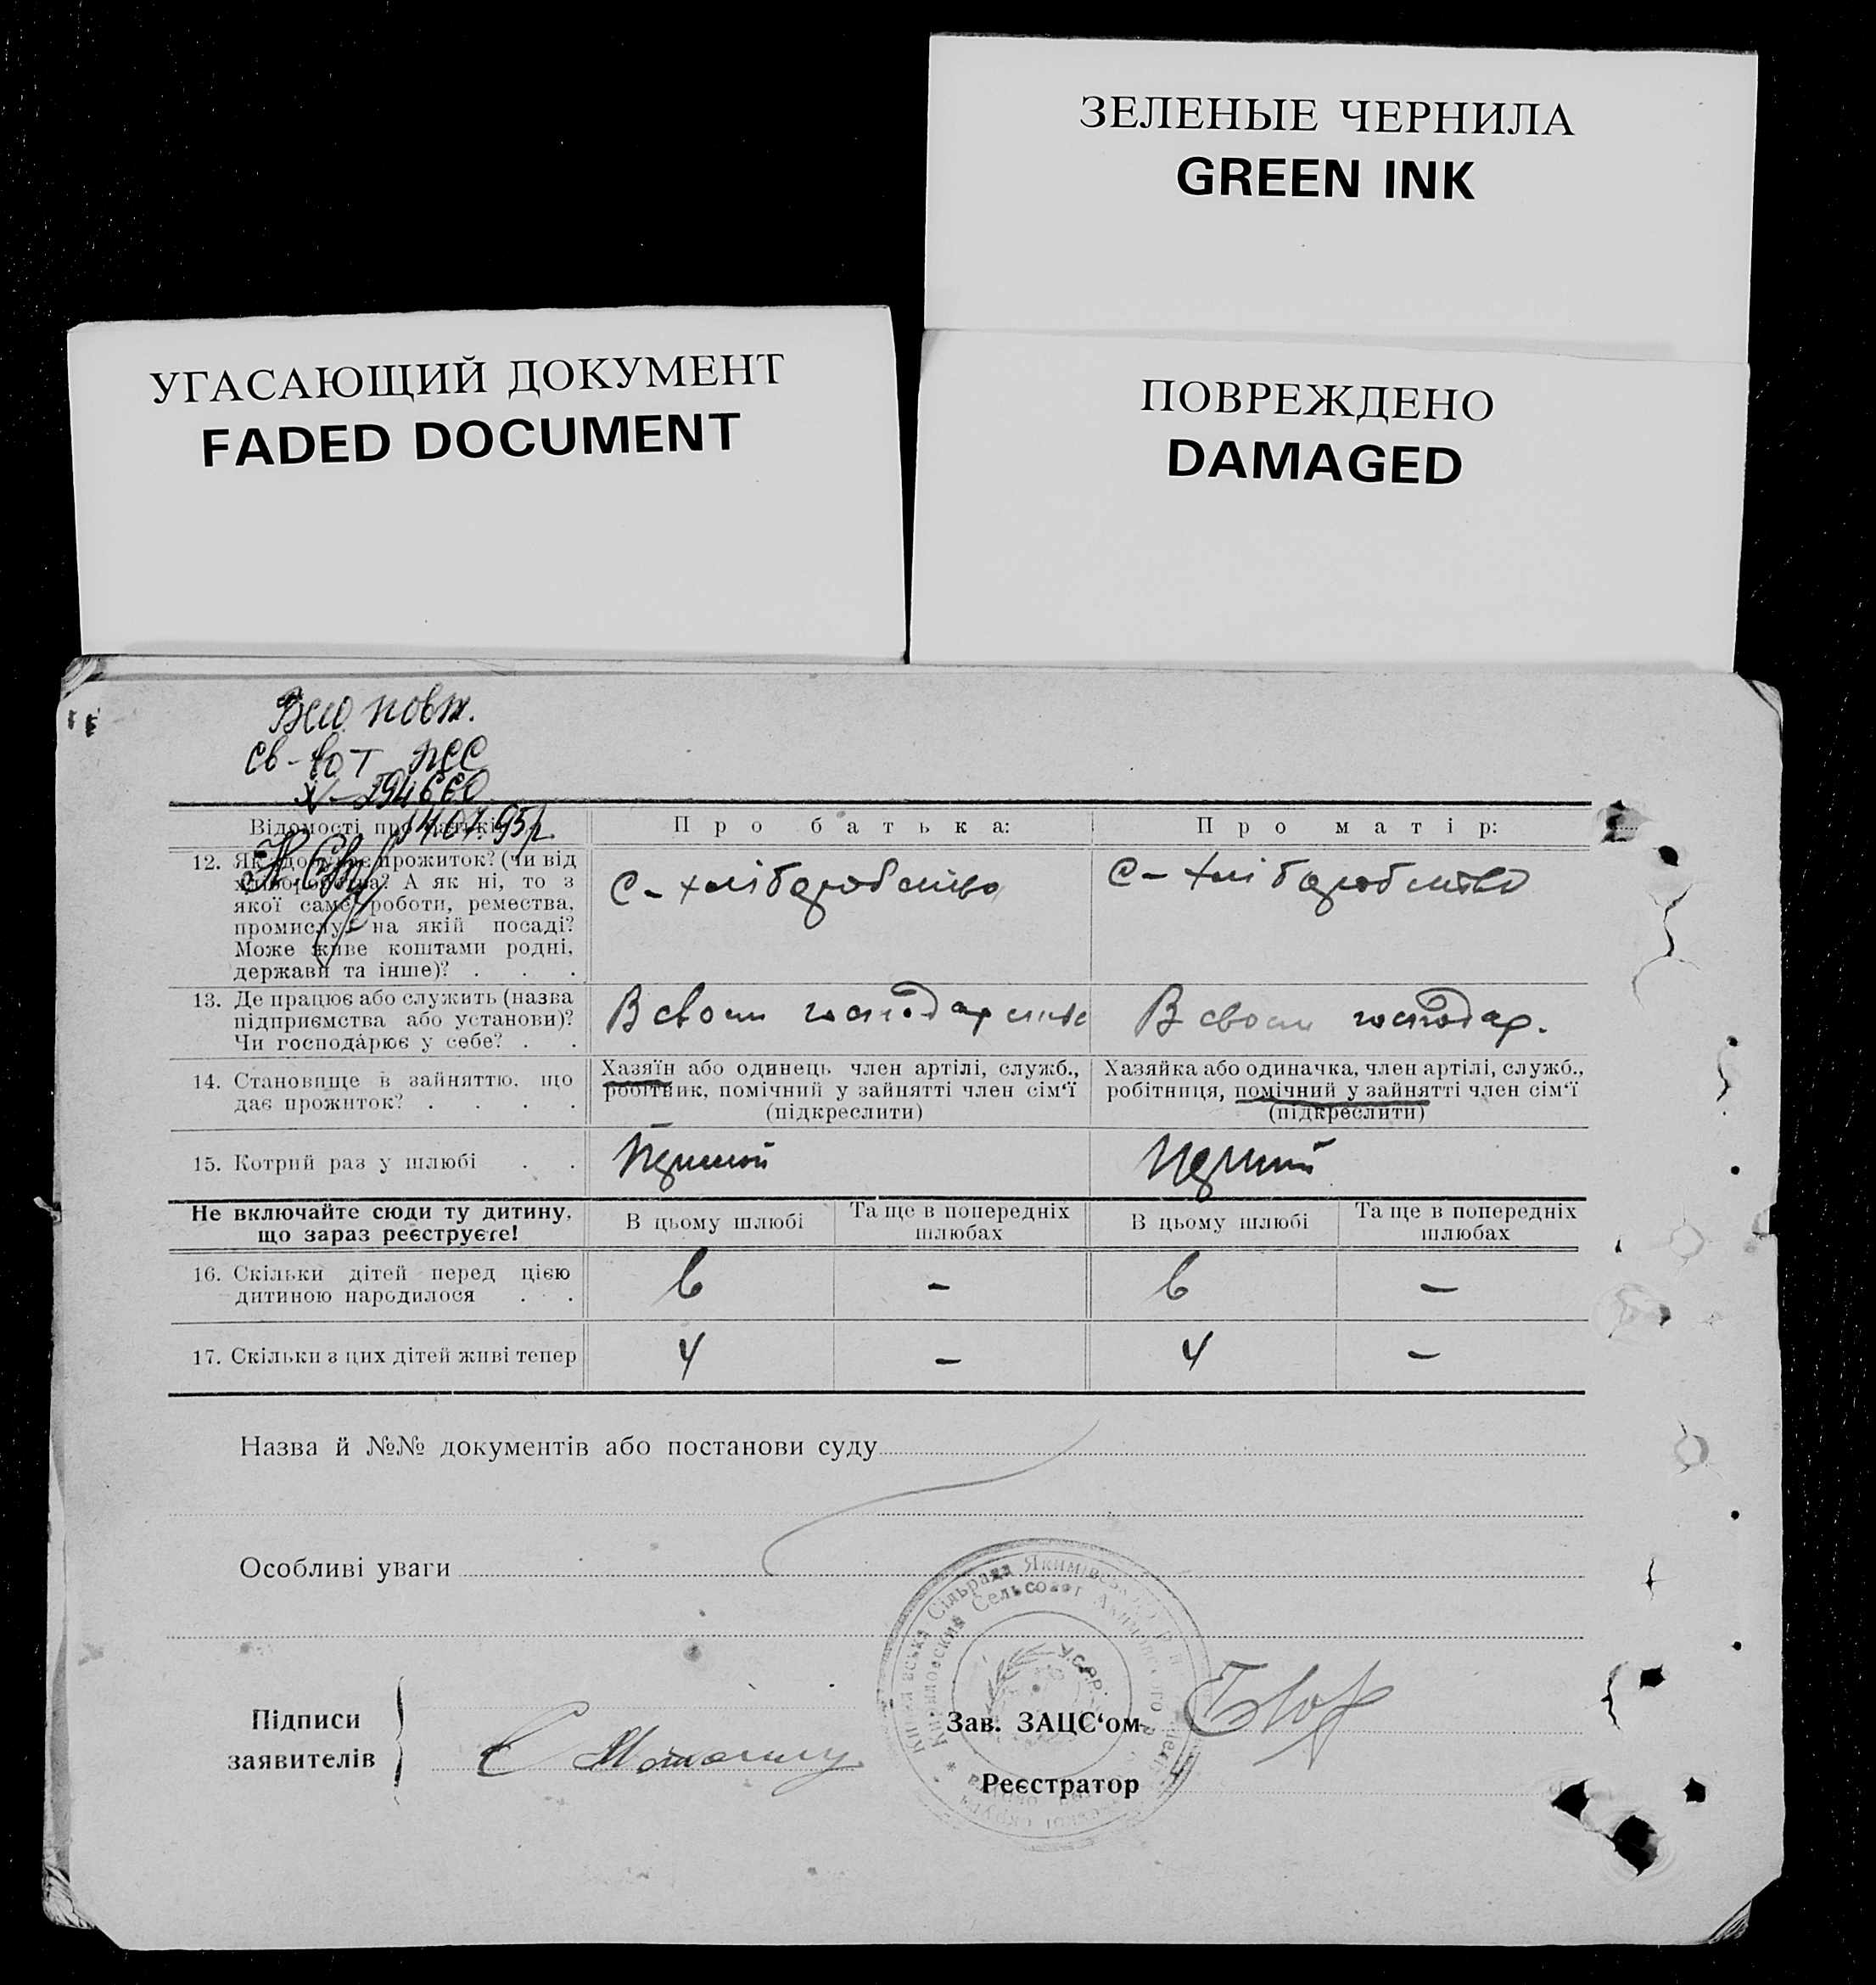 ЗЕЛЕНЫЕ ЧЕРНИЛА
GREEN INK
УГАСАЮЩИЙ ДОКУМЕНТ
FADED DOCUMENT
ПОВРЕЖДЕНО
DAMAGED
повт.
св-во
14.07.95р.
Відомості про
П р о б а т ь к а:
П р о м а т і р:
12. Як прожиток? (чи від
А як ні, то з
якої саме роботи, ремества,
промислу, на якій посаді?
Може живе коштами родні,
держави та інше)? . . .
С-хліборобство
С-хліборобство
13. Де працює або служить (назва
підприємства або установи)?
Чи господарює у себе? . .
В своем
В своем господар.
14. Становище в зайняттю, що
дає прожиток? . . . .
Хазяїн або одинець член артілі, служб.,
робітник, помічний у зайнятті член сім‘ї
(підкреслити)
Хазяйка або одиначка, член артілі, служб.,
робітниця, помічний у зайнятті член сім‘ї
(підкреслити)
15. Котрий раз у шлюбі . .
Не включайте сюди ту дитину,
що зараз реєструєте!
В цьому шлюбі
Та ще в попередніх
шлюбах
В цьому шлюбі
Та ще в попередніх
шлюбах
16. Скільки дітей перед цією
дитиною народилося . .
6
–
6
–
17. Скільки з цих дітей живі тепер
4
–
4
–
Назва й №№ документів або постанови суду
Особливі уваги
Сільрада
Сельсовет
У.С.Р.Р.
Підписи
заявителів
Зав. ЗАЦС‘ом
Реєстратор